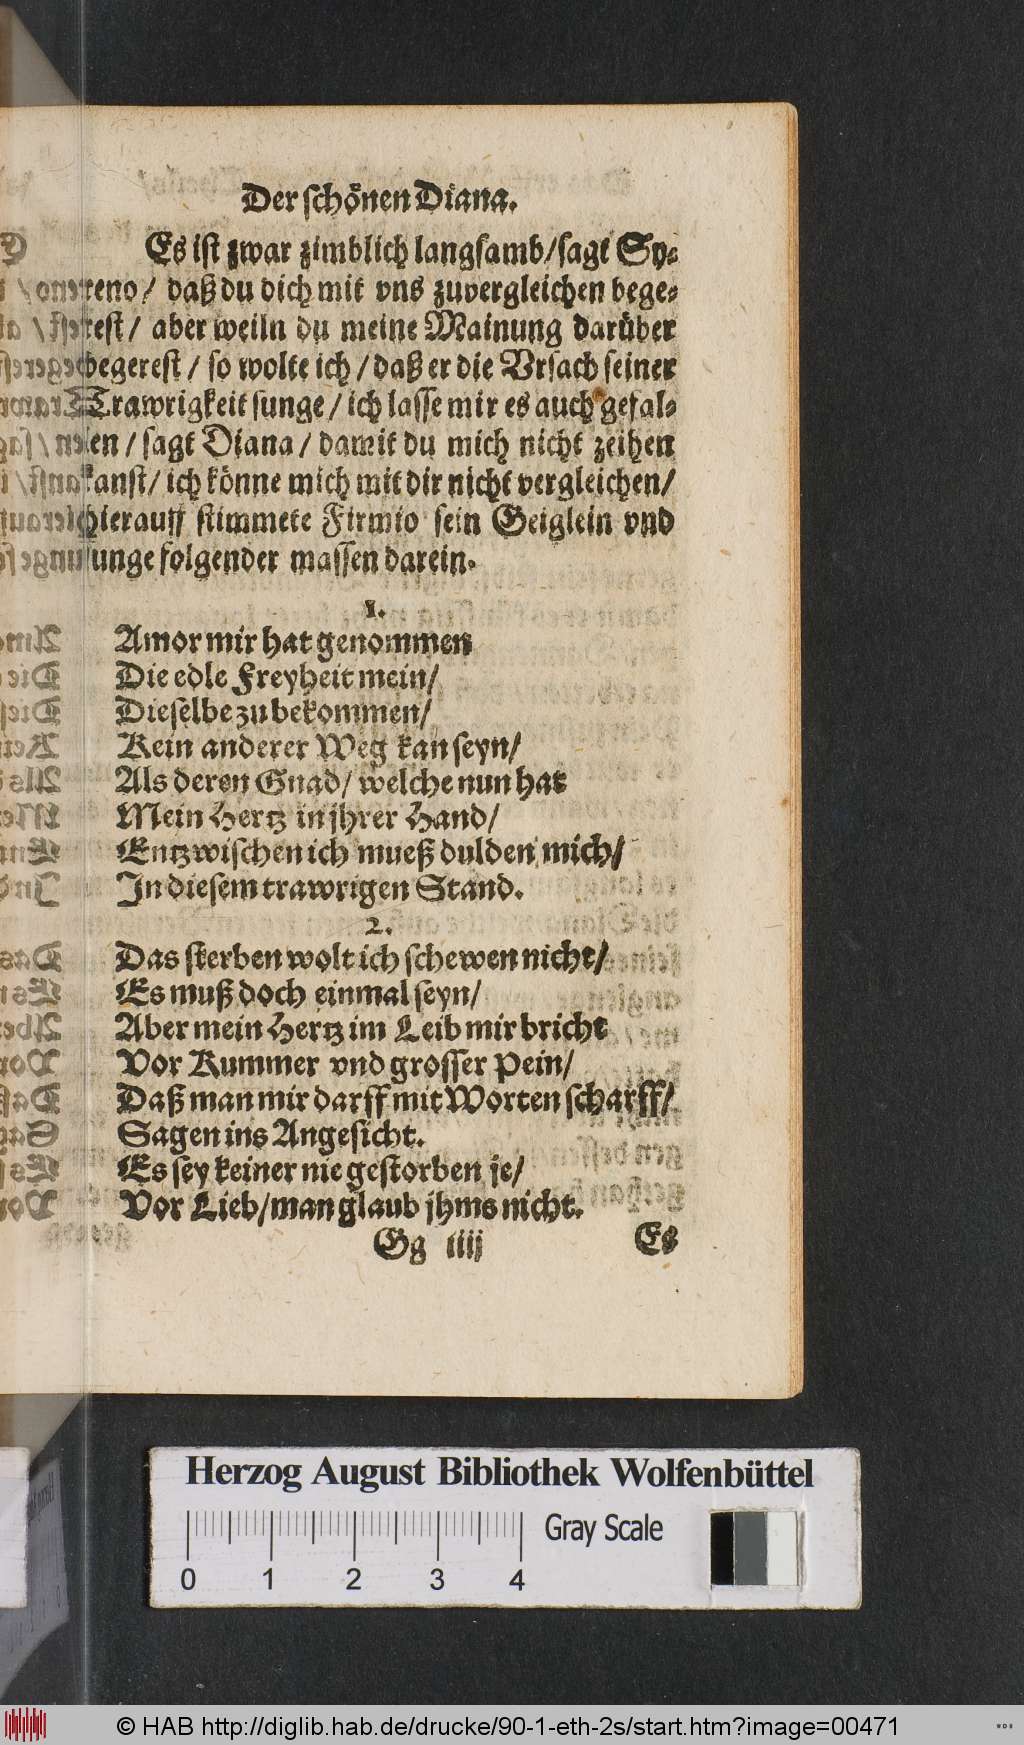 Der schönen Diana.
Es ist zwar zimblich langsamb/sagt Sy-
reno/ daß du dich mit vns zuvergleichen bege-
rest/ aber weiln du meine Mainung darüber
begerest/ so wolte ich/ daß er die Vrsach seiner
Trawrigkeit sunge/ ich lasse mir es auch gefal-
len/ sagt Diana/ damit du mich nicht zeihen
kanst/ ich könne mich mit dir nicht vergleichen/
hierauff stimmete Firmio sein Geiglein vnd
sunge folgender massen darein.
1.
Amor mir hat genommen
Die edle Freyheit mein/
Dieselbe zu bekommen/
Kein anderer Weg kan seyn/
Als deren Gnad/ welche nun hat
Mein Hertz in jhrer Hand/
Entzwischen ich mueß dulden mich/
In diesem trawrigen Stand.
2.
Das sterben wolt ich schewen nicht/
Es muß doch einmal seyn/
Aber mein Hertz im Leib mir bricht
Vor Kummer vnd grosser Pein/
Daß man mir darff mit Worten scharff/
Sagen ins Angesicht.
Es sey keiner nie gestorben je/
Vor Lieb/man glaub jhms nicht.
Gg iiij Es
Herzog August Bibliothek Wolfenbüttel
Gray Scale
0 1 2 3 4
© HAB http://diglib.hab.de/drucke/90-1-eth-2s/start.htm?image=00471